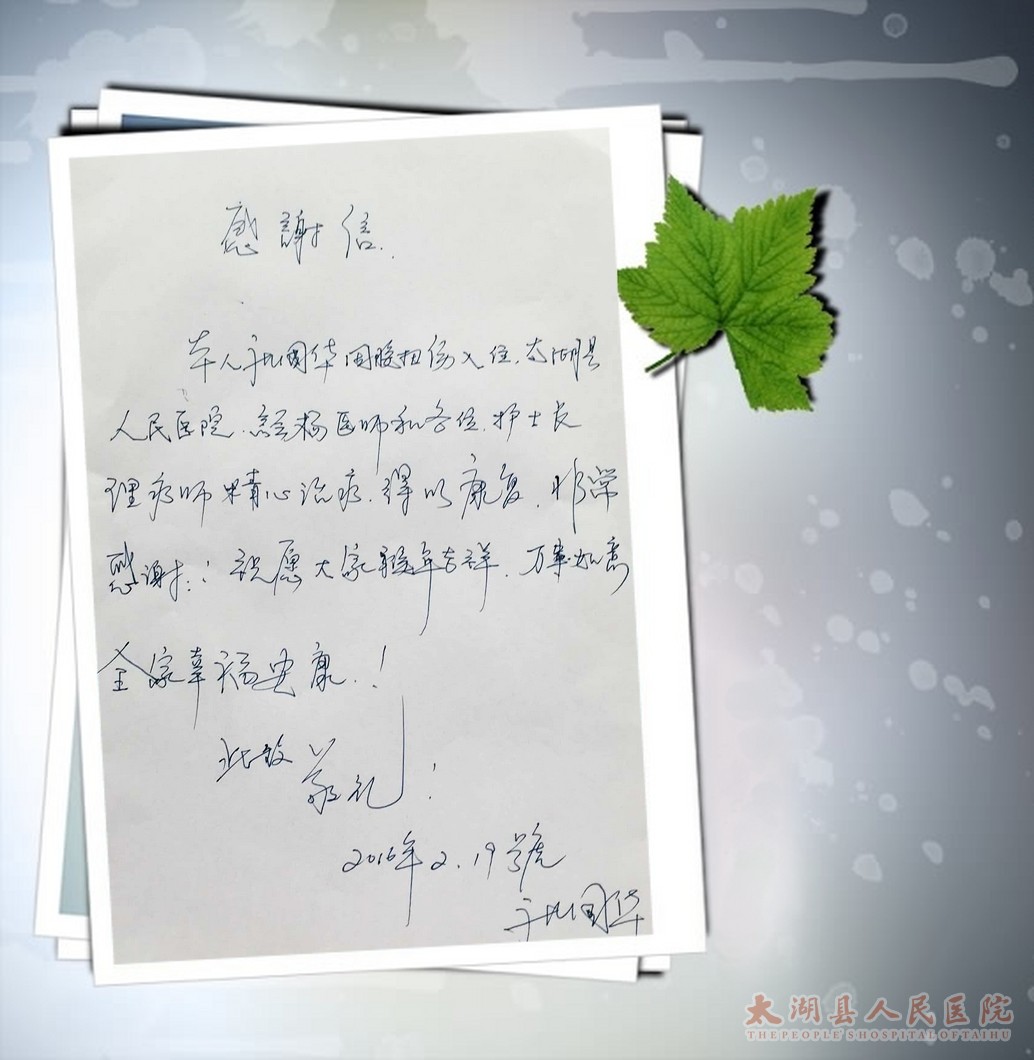 感謝信.
本人 国华因腰扭伤入住.太湖县
人民医院.经杨医师和各位.护士长
理疗师精心治疗.得以康复.非常
感谢.!祝愿大家猴年吉祥.万事如意
全家幸福安康.!
此致
敬礼!
2016年2.19号
国华
太湖县人民医院
THE PEOPLE'S HOSPITAL OF TAIHU